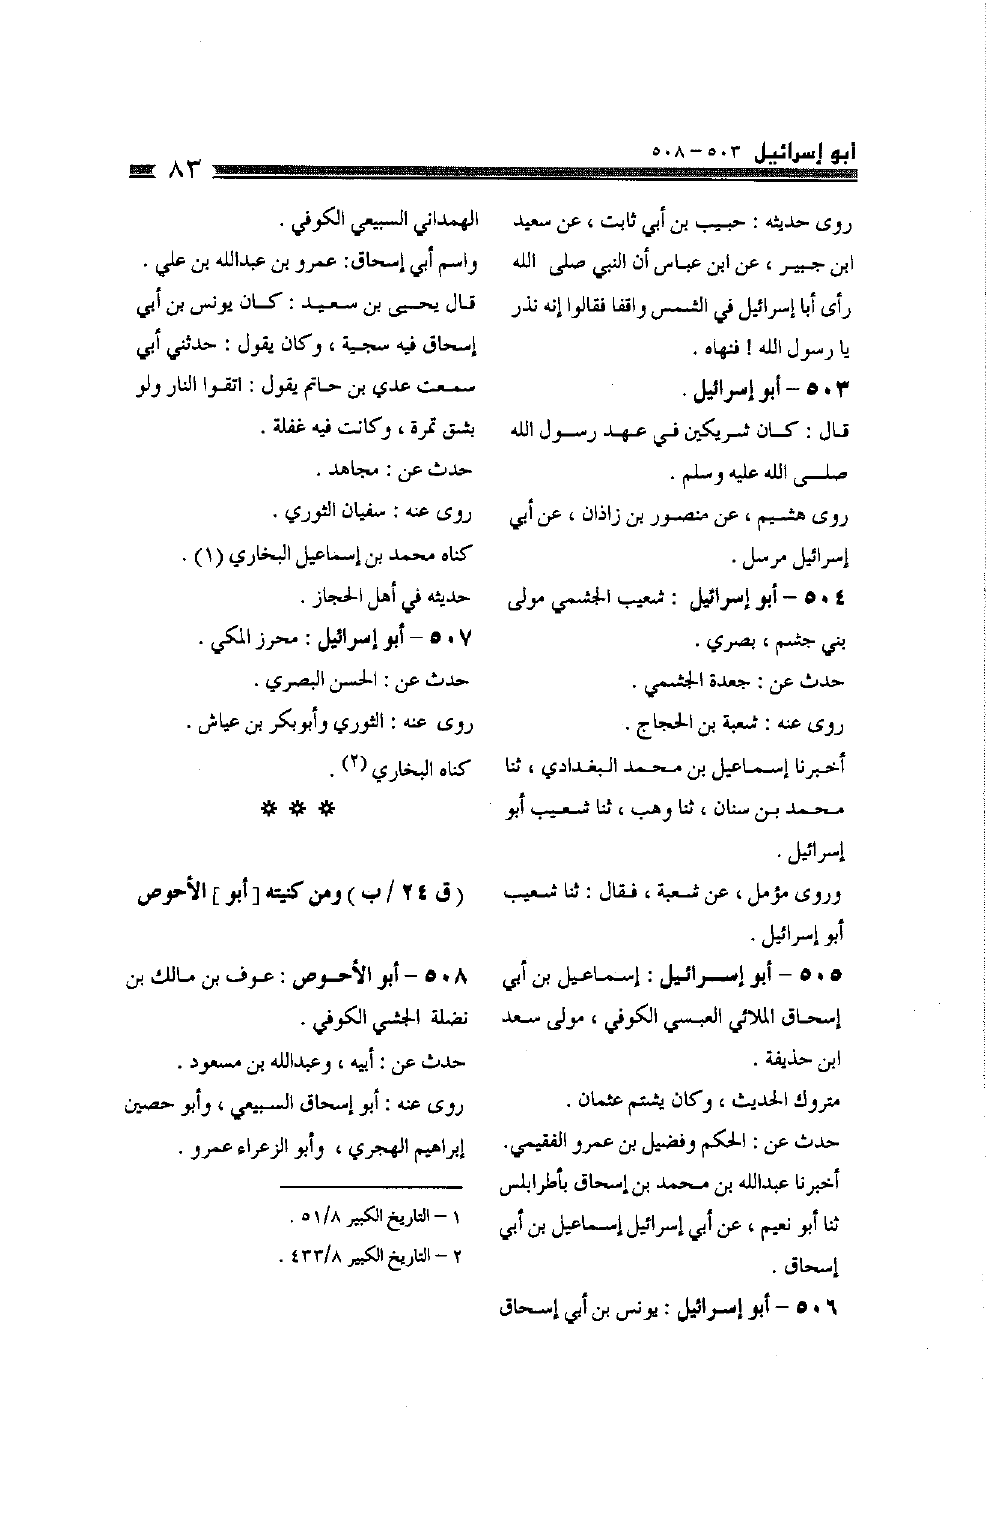 أبو إسرائيل ٥٠٣ – ٥٠٨
٨٣
روى حديثه : حبيب بن أبي ثابت ، عن سعيد
ابن جبير ، عن ابن عباس أن النبي صلى الله
رأى أبا إسرائيل في الشمس واقفا فقالوا إنه نذر
يا رسول الله ! فنهاه .
٥٠٣ – أبو إسرائيل .
قال : كان شريكين في عهد رسول الله
صلى الله عليه وسلم .
روى هشيم ، عن منصور بن زاذان ، عن أبي
إسرائيل مرسل .
٥٠٤ – أبو إسرائيل : شعيب الجشمي مولى
بني جشم ، بصري .
حدث عن : جعدة الجشمي .
روى عنه : شعبة بن الحجاج .
أخبرنا إسماعيل بن محمد البغدادي ، ثنا
محمد بن سنان ، ثنا وهب ، ثنا شعيب أبو
إسرائيل .
وروى مؤمل ، عن شعبة ، فقال : ثنا شعيب
أبو إسرائيل .
٥٠٥ – أبو إسرائيل : إسماعيل بن أبي
إسحاق الملائي العبسي الكوفي ، مولى سعد
ابن حذيفة .
متروك الحديث ، وكان يشتم عثمان .
حدث عن : الحكم وفضيل بن عمرو الفقيمي.
أخبرنا عبدالله بن محمد بن إسحاق بأطرابلس
ثنا أبو نعيم ، عن أبي إسرائيل إسماعيل بن أبي
إسحاق .
٥٠٦ – أبو إسرائيل : يونس بن أبي إسحاق
الهمداني السبيعي الكوفي .
واسم أبي إسحاق: عمرو بن عبدالله بن علي .
قال يحيى بن سعيد : كان يونس بن أبي
إسحاق فيه سجية ، وكان يقول : حدثني أبي
سمعت عدي بن حاتم يقول : اتقوا النار ولو
بشق تمرة ، وكانت فيه غفلة .
حدث عن : مجاهد .
روى عنه : سفيان الثوري .
كناه محمد بن إسماعيل البخاري (١) .
حديثه في أهل الحجاز .
٥٠٧ – أبو إسرائيل : محرز المكي .
حدث عن : الحسن البصري .
روى عنه : الثوري وأبوبكر بن عياش .
كناه البخاري (٢) .
* * *
( ق ٢٤ / ب ) ومن كنيته [ أبو ] الأحوص
٥٠٨ – أبو الأحوص : عوف بن مالك بن
نضلة الجشي الكوفي .
حدث عن : أبيه ، وعبدالله بن مسعود .
روى عنه : أبو إسحاق السبيعي ، وأبو حصين
إبراهيم الهجري ، وأبو الزعراء عمرو .
١ – التاريخ الكبير ٥١/٨ .
٢ – التاريخ الكبير ٤٣٣/٨ .